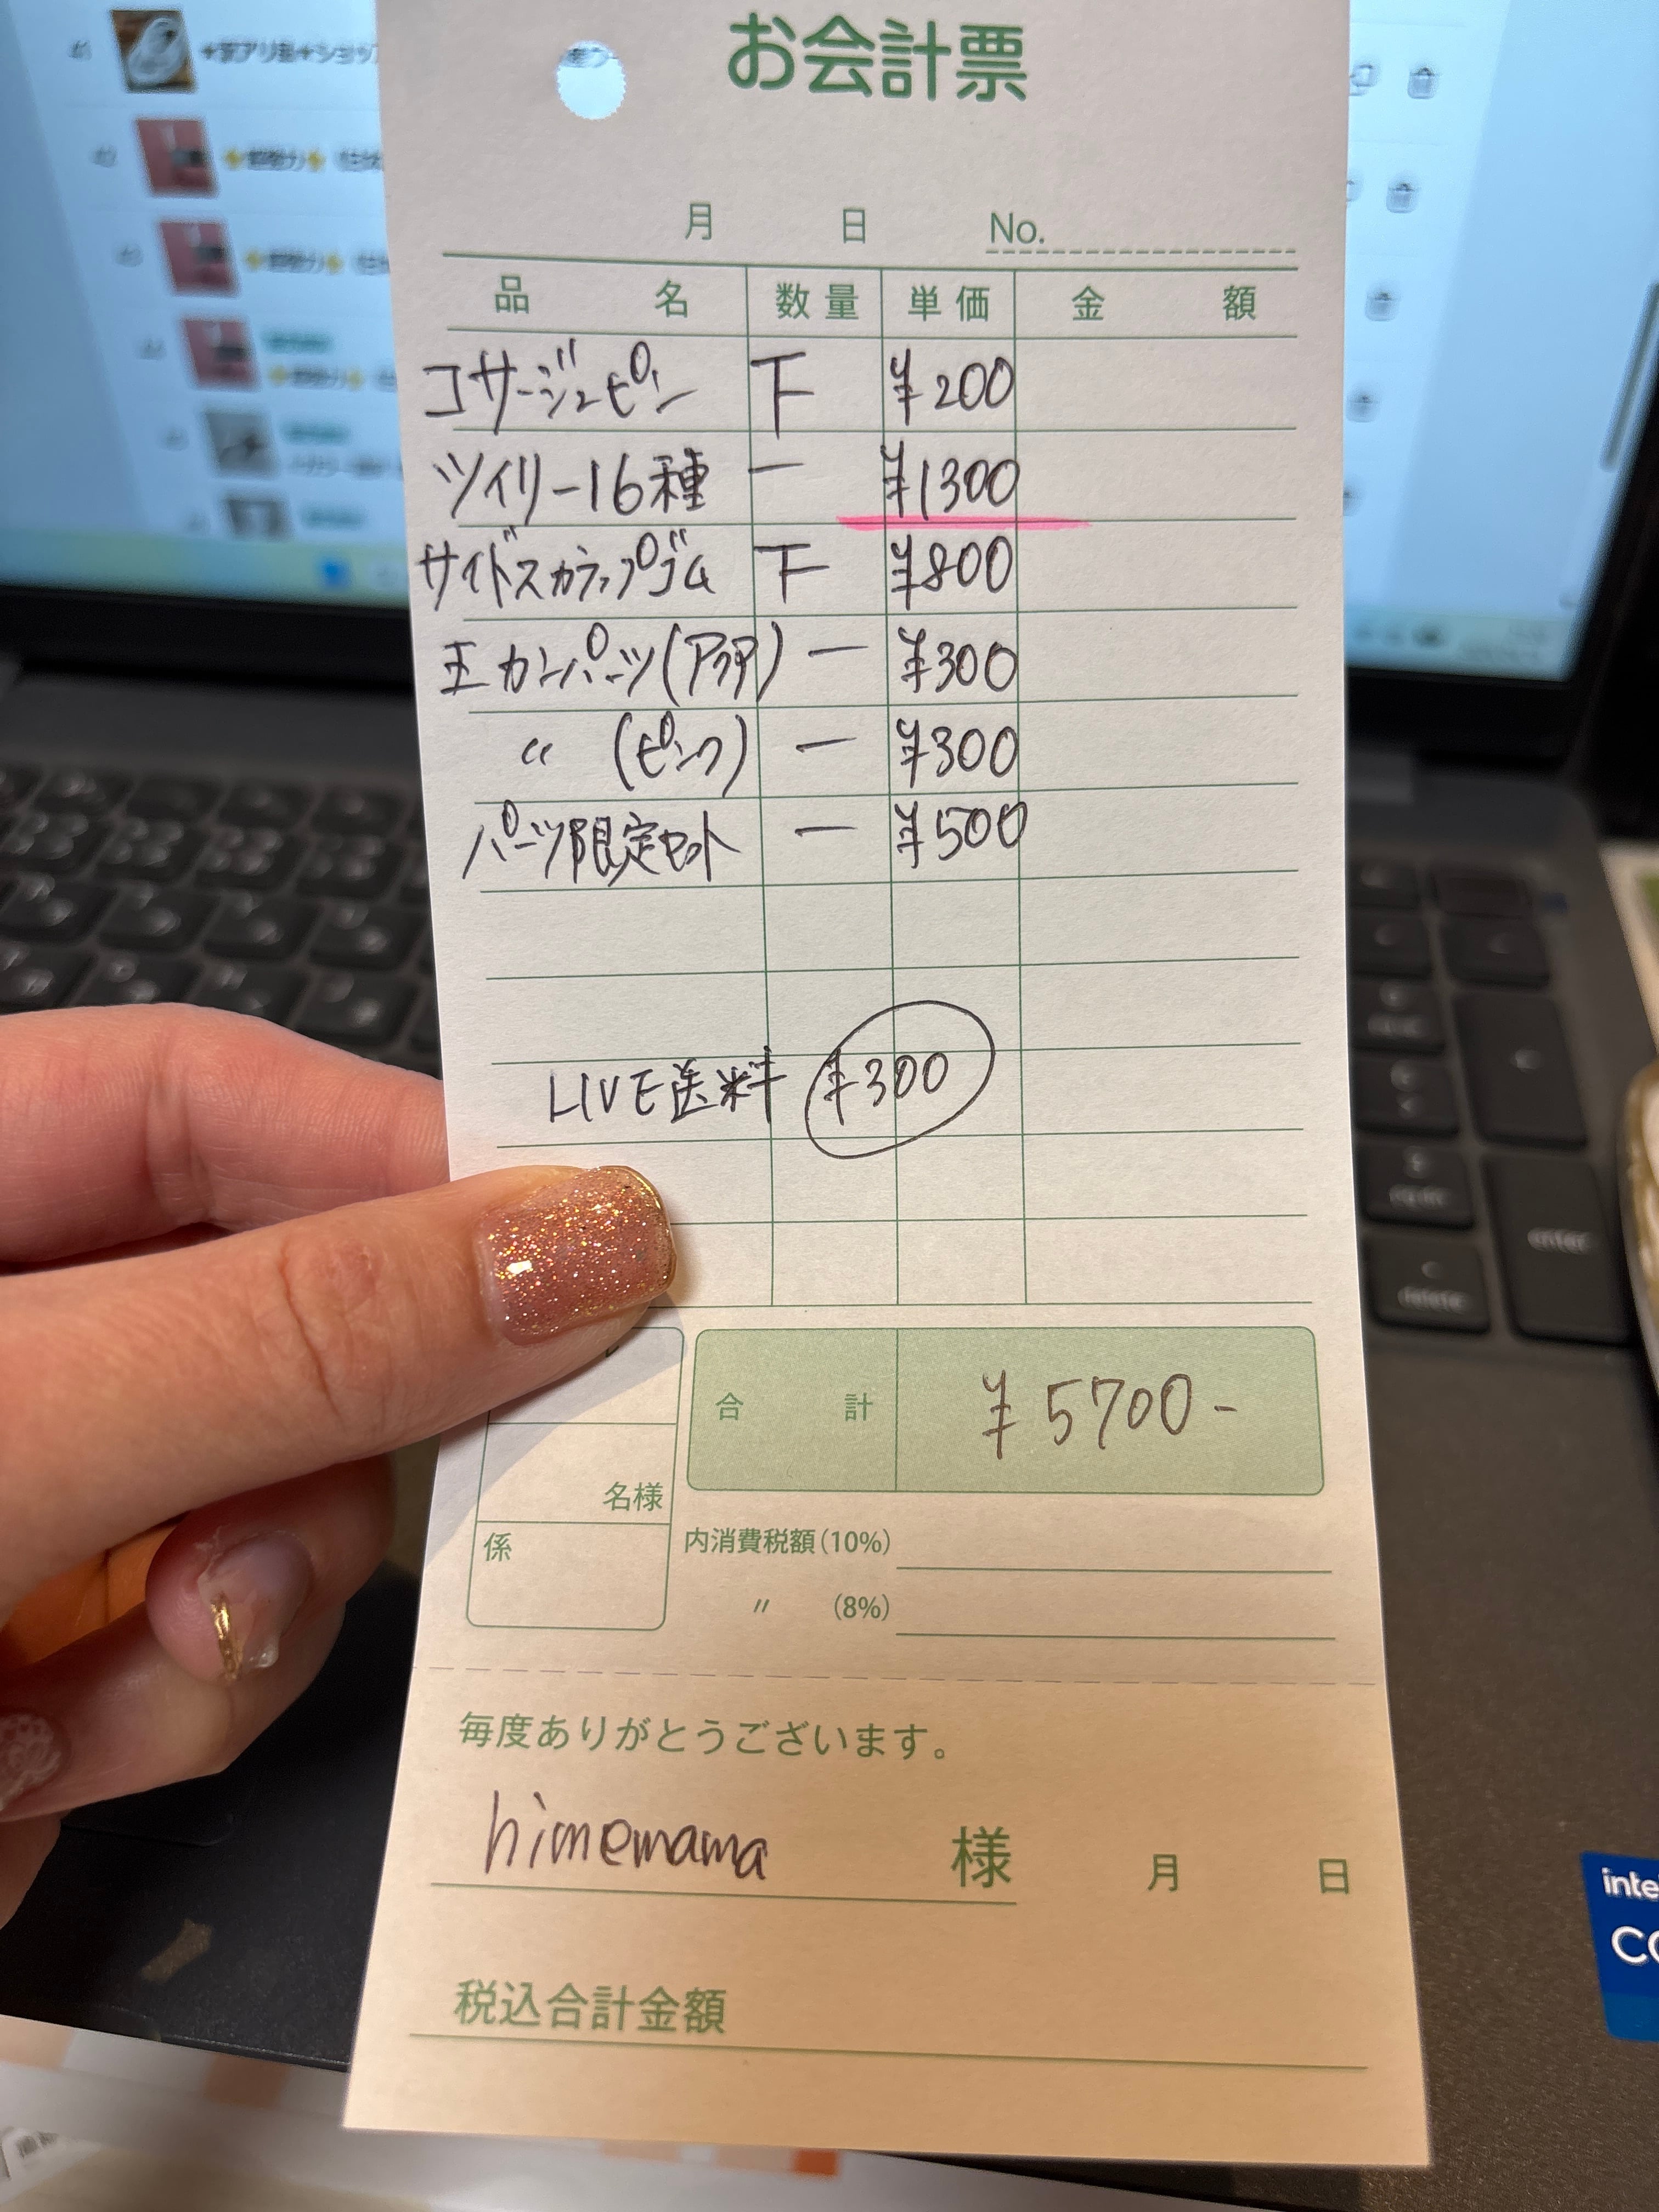 お会計票
月 日 No.
品名 数量 単価 金額
コサージュピン T ¥200
ツイリー16種 一 ¥1300
サイドスカラップゴム T ¥800
王カンパーツ(アクア) 一 ¥300
〃 (ピンク) 一 ¥300
パーツ限定セット 一 ¥500
LIVE送料 ¥300
合計 ¥5700-
名様
係
内消費税額(10%)
〃 (8%)
毎度ありがとうございます。
himemama 様 月 日
税込合計金額
enter
delete